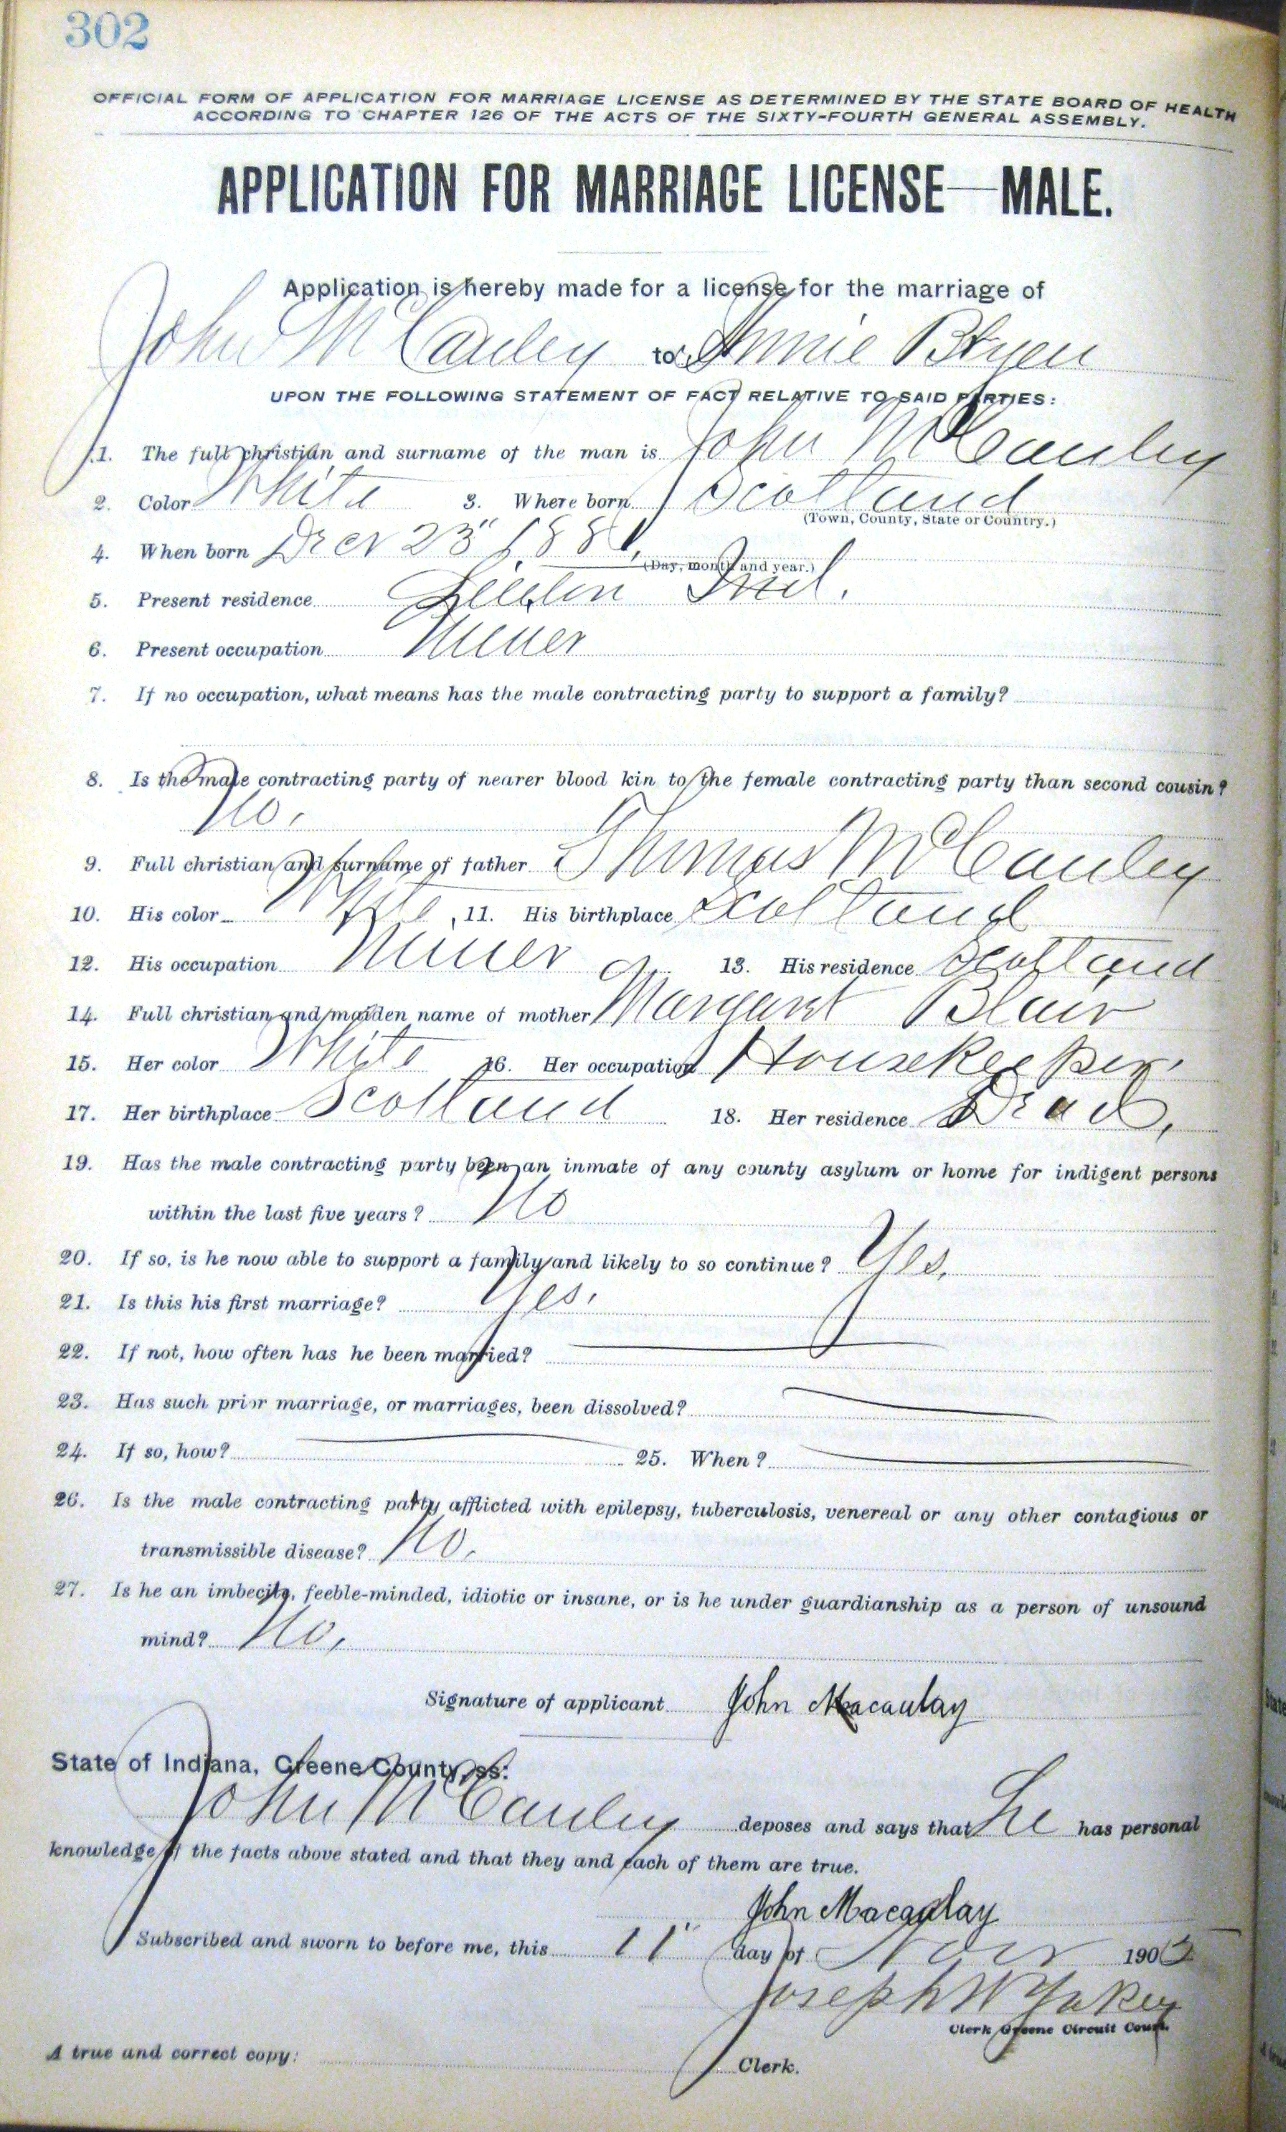 302
OFFICIAL FORM OF APPLICATION FOR MARRIAGE LICENSE AS DETERMINED BY THE STATE BOARD OF HEALTH
ACCORDING TO CHAPTER 126 OF THE ACTS OF THE SIXTY-FOURTH GENERAL ASSEMBLY.
APPLICATION FOR MARRIAGE LICENSE—MALE.
Application is hereby made for a license for the marriage of
John McCauley to Annie Bryen
UPON THE FOLLOWING STATEMENT OF FACT RELATIVE TO SAID PARTIES:
1. The full christian and surname of the man is John McCauley
2. Color White 3. Where born Scotland
(Town, County, State or Country.)
4. When born Decr 23" 1881.
(Day, month and year.)
5. Present residence Linton Ind.
6. Present occupation Miner
7. If no occupation, what means has the male contracting party to support a family?
8. Is the male contracting party of nearer blood kin to the female contracting party than second cousin?
No.
9. Full christian and surname of father Thomas McCauley
10. His color White 11. His birthplace Scotland
12. His occupation Miner 13. His residence Scotland
14. Full christian and maiden name of mother Margaret Blair
15. Her color White 16. Her occupation Housekeeper.
17. Her birthplace Scotland 18. Her residence Dead,
19. Has the male contracting party been an inmate of any county asylum or home for indigent persons
within the last five years? No
20. If so, is he now able to support a family and likely to so continue? Yes.
21. Is this his first marriage? Yes.
22. If not, how often has he been married?
23. Has such prior marriage, or marriages, been dissolved?
24. If so, how? 25. When?
26. Is the male contracting party afflicted with epilepsy, tuberculosis, venereal or any other contagious or
transmissible disease? No.
27. Is he an imbecile, feeble-minded, idiotic or insane, or is he under guardianship as a person of unsound
mind? No.
Signature of applicant John Macaulay
State of Indiana, Greene County, ss:
John McCauley deposes and says that he has personal
knowledge of the facts above stated and that they and each of them are true.
John Macaulay
Subscribed and sworn to before me, this 11" day of Novr 1905
Joseph W Yakey
Clerk Greene Circuit Court.
A true and correct copy: Clerk.